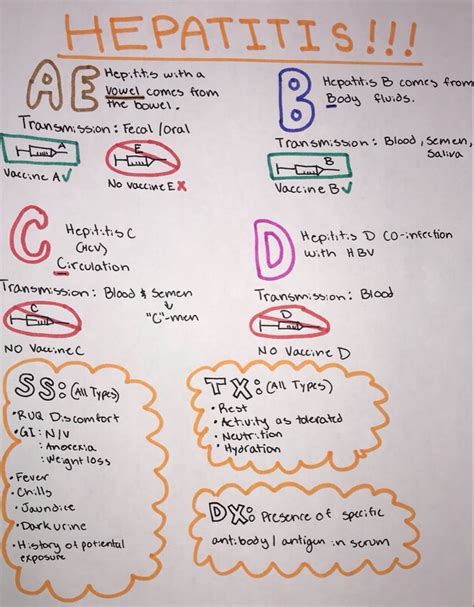 HEPATITIS!!!
AE
Hepititis with a
Vowel comes from
the bowel.
Transmission: Fecal/Oral
A
Vaccine A✓
E
No vaccine E X
B
Hepatitis B comes from
Body fluids.
Transmission: Blood, Semen,
Saliva
B
Vaccine B✓
C
Hepititis C
(HCV)
Circulation
Transmission: Blood & Semen
"C"-men
C
No Vaccine C
D
Hepititis D CO-infection
with HBV
Transmission: Blood
D
No Vaccine D
SS: (All Types)
• RUQ Discomfort
• GI: N/V
: Anorexia
: Weight loss
• Fever
• Chills
• Jaundice
• Dark urine
• History of potential
exposure
TX: (All Types)
• Rest
• Activity as tolerated
• Neutrition
• Hydration
DX: Presence of specific
antibody/antigen in serum